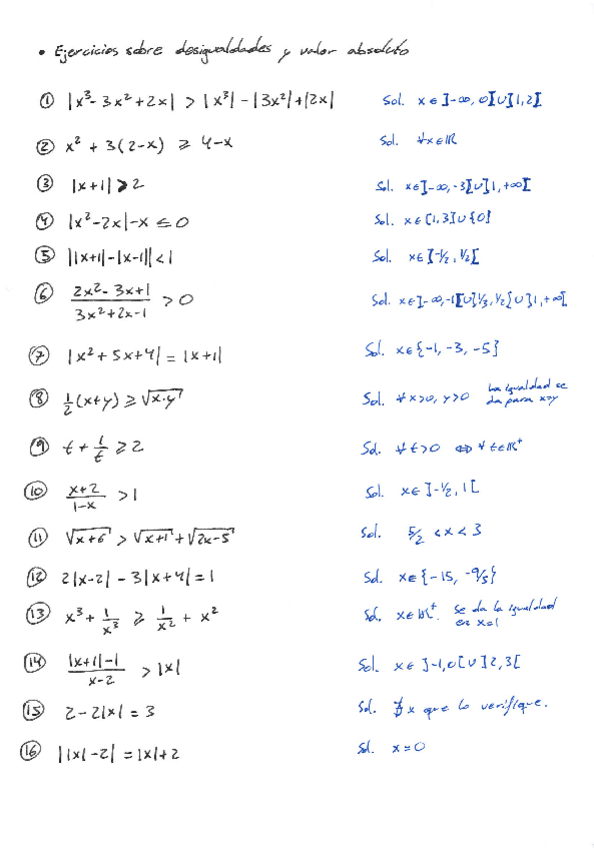 • Ejercicios sobre desigualdades y valor absoluto
① |x³-3x²+2x| > |x³|-|3x²|+|2x| Sol. x∈]-∞,0[∪]1,2[
② x²+3(2-x) ≥ 4-x Sol. ∀x∈ℝ
③ |x+1|>2 Sol. x∈]-∞,-3[∪]1,+∞[
④ |x²-2x|-x ≤ 0 Sol. x∈[1,3]∪{0}
⑤ ||x+1|-|x-1||<1 Sol. x∈]-1/2,1/2[
⑥ (2x²-3x+1)/(3x²+2x-1) > 0 Sol. x∈]-∞,-1[∪]1/3,1/2[∪]1,+∞[
⑦ |x²+5x+4| = |x+1| Sol. x∈{-1,-3,-5}
⑧ 1/2(x+y) ≥ √x·y Sol. ∀x>0, y>0 La igualdad se
da para x=y
⑨ t+1/t ≥ 2 Sol. ∀t>0 ⇔ ∀t∈ℝ⁺
⑩ (x+2)/(1-x) > 1 Sol. x∈]-1/2,1[
⑪ √x+6 > √x+1 + √2x-5 Sol. 5/2 < x < 3
⑫ 2|x-2| - 3|x+4| = 1 Sol. x∈{-15,-9/5}
⑬ x³+1/x³ ≥ 1/x²+x² Sol. x∈ℝ⁺. Se da la igualdad
en x=1
⑭ (|x+1|-1)/(x-2) > |x| Sol. x∈]-1,0[∪]2,3[
⑮ 2-2|x| = 3 Sol. ∄ x que lo verifique.
⑯ ||x|-2| = |x|+2 Sol. x=0